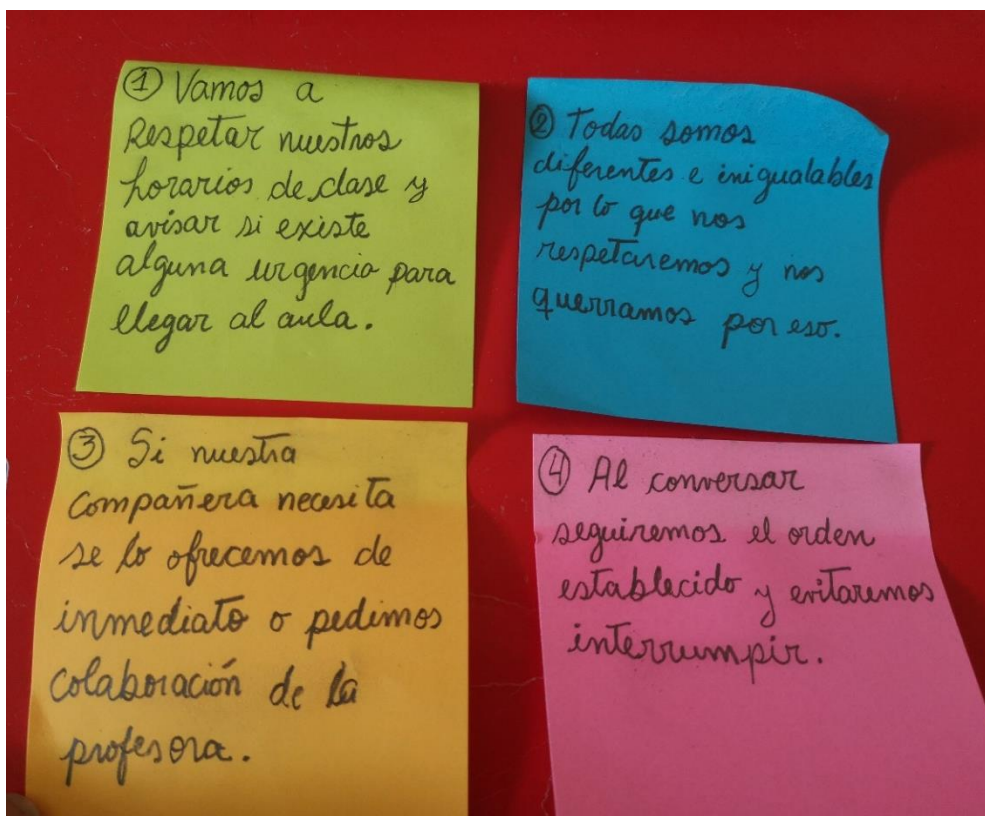 ① Vamos a
Respetar nuestros
horarios de clase y
avisar si existe
alguna urgencia para
llegar al aula.
② Todas somos
diferentes e inigualables
por lo que nos
respetaremos y nos
querramos por eso.
③ Si nuestra
compañera necesita
se lo ofrecemos de
inmediato o pedimos
colaboración de la
profesora.
④ Al conversar
seguiremos el orden
establecido y evitaremos
interrumpir.